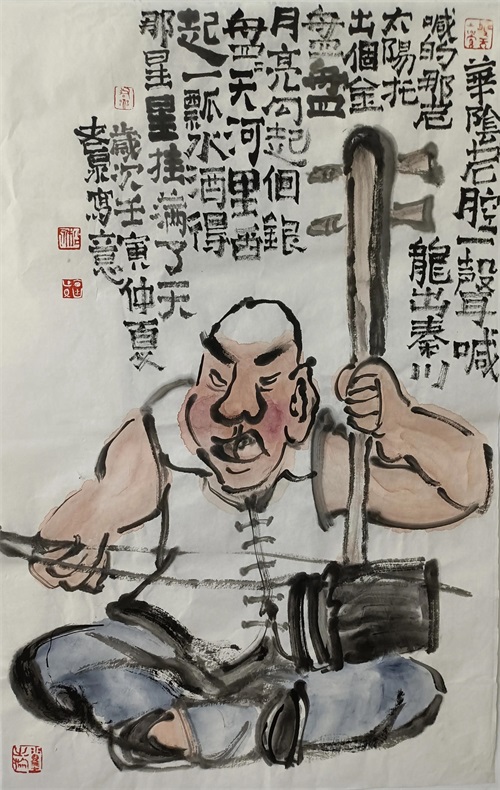 華陰老腔一聲喊
喊的那老龍出秦川
太陽托
出個金
盘盘
月亮勾起個銀
盘天河里舀
起一瓢水洒得
那星星挂满了天
歲次壬寅仲夏
寫意